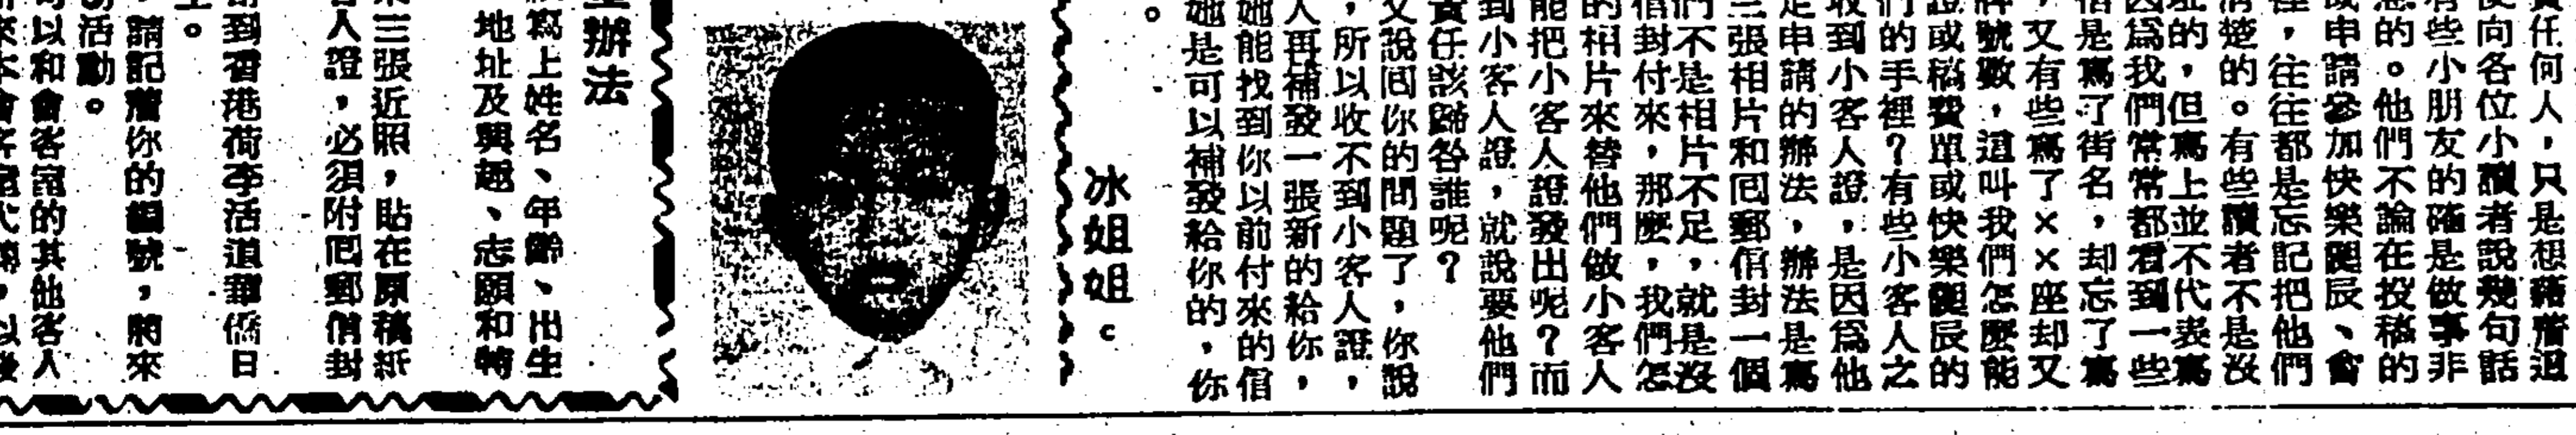 責任何人，只是想藉着這
便向各位小讀者說幾句話
有些小朋友的確是做事非
急的。他們不論在投稿的
或申請參加快樂誕辰、會
裡，往往都是忘記把他們
清楚的。有些讀者不是沒
址的，但寫上並不代表寫
因爲我們常常都看到一些
信是寫了街名，却忘了寫
，又有些寫了××座却又
牌號數，這叫我們怎麼能
證或稿費單或快樂誕辰的
們的手裡？有些小客人之
收到小客人證，是因爲他
是申請的辦法，辦法是寫
三張相片和回郵信封一個
們不是相片不足，就是沒
信封付來，那麼，我們怎
的相片來替他們做小客人
能把小客人證發出呢？而
到小客人證，就說要他們
責任該歸咎誰呢？
又說回你的問題了，你說
，所以收不到小客人證，
人再補發一張新的給你，
她能找到你以前付來的信
她是可以補發給你的，你
。
冰姐姐。
辦法
寫上姓名、年齡、出生
地址及興趣、志願和特
三張近照，貼在原稿紙
人證，必須附回郵信封
到香港荷李活道華僑日
上。
請記着你的編號，將來
活動。
可以和會客室的其他客人